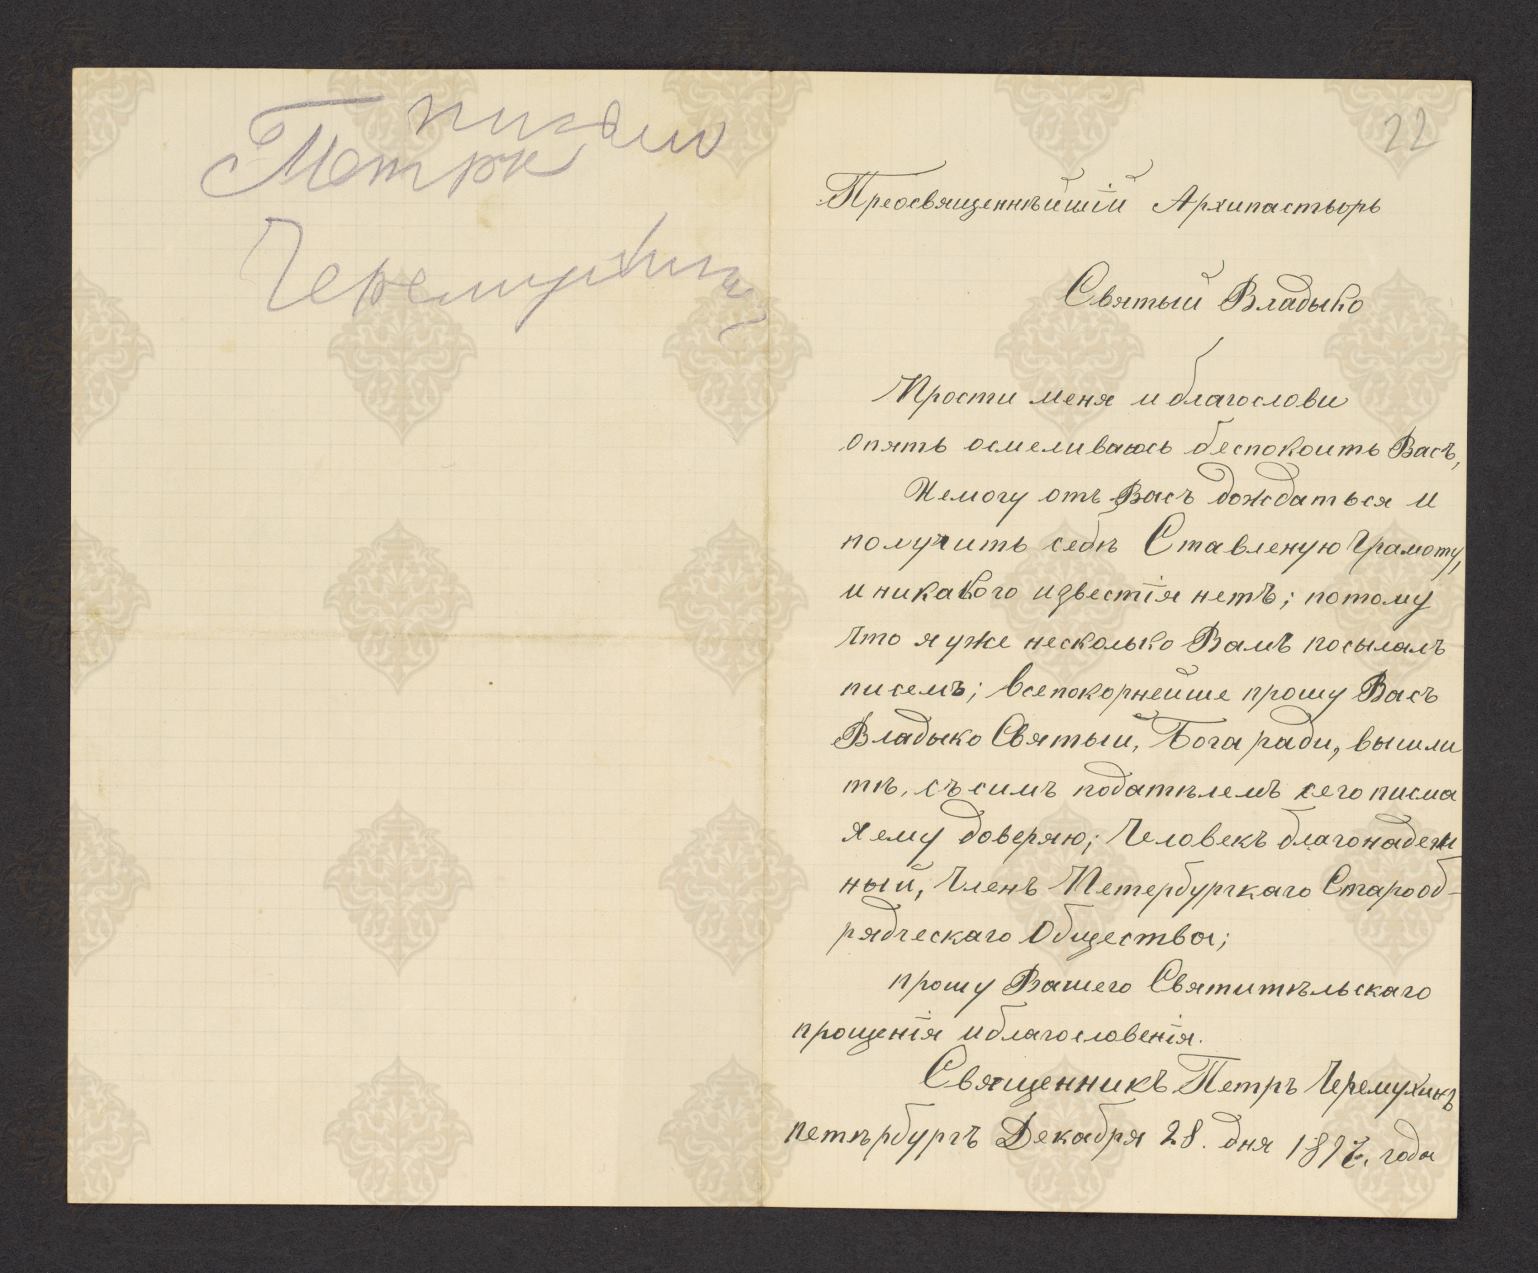 писмо
Петра
Черемухина
22
Преосвященнѣйшій Архипастырь
Святый Владыко
Прости меня и благослови
опять осмеливаюсь беспокоить Васъ,
Немогу отъ Васъ дождаться и
получить себѣ Ставленую грамоту,
и никакого извествія нетъ; потому
что я уже несколько Вамъ посылалъ
писемъ; всепокорнейше прошу Васъ
Владыко Святый, Бога ради, вышли
тѣ, съ симъ податѣлемъ сего писма
я ему доверяю; Человекъ благонадеж
ный, Членъ Петербургкаго Старооб-
рядческаго Общества;
прошу Вашего Святитѣльскаго
прощенія и благословенія.
Священникъ Петръ Черемухинъ
петѣрбургъ Декабря 28. дня 1897. года